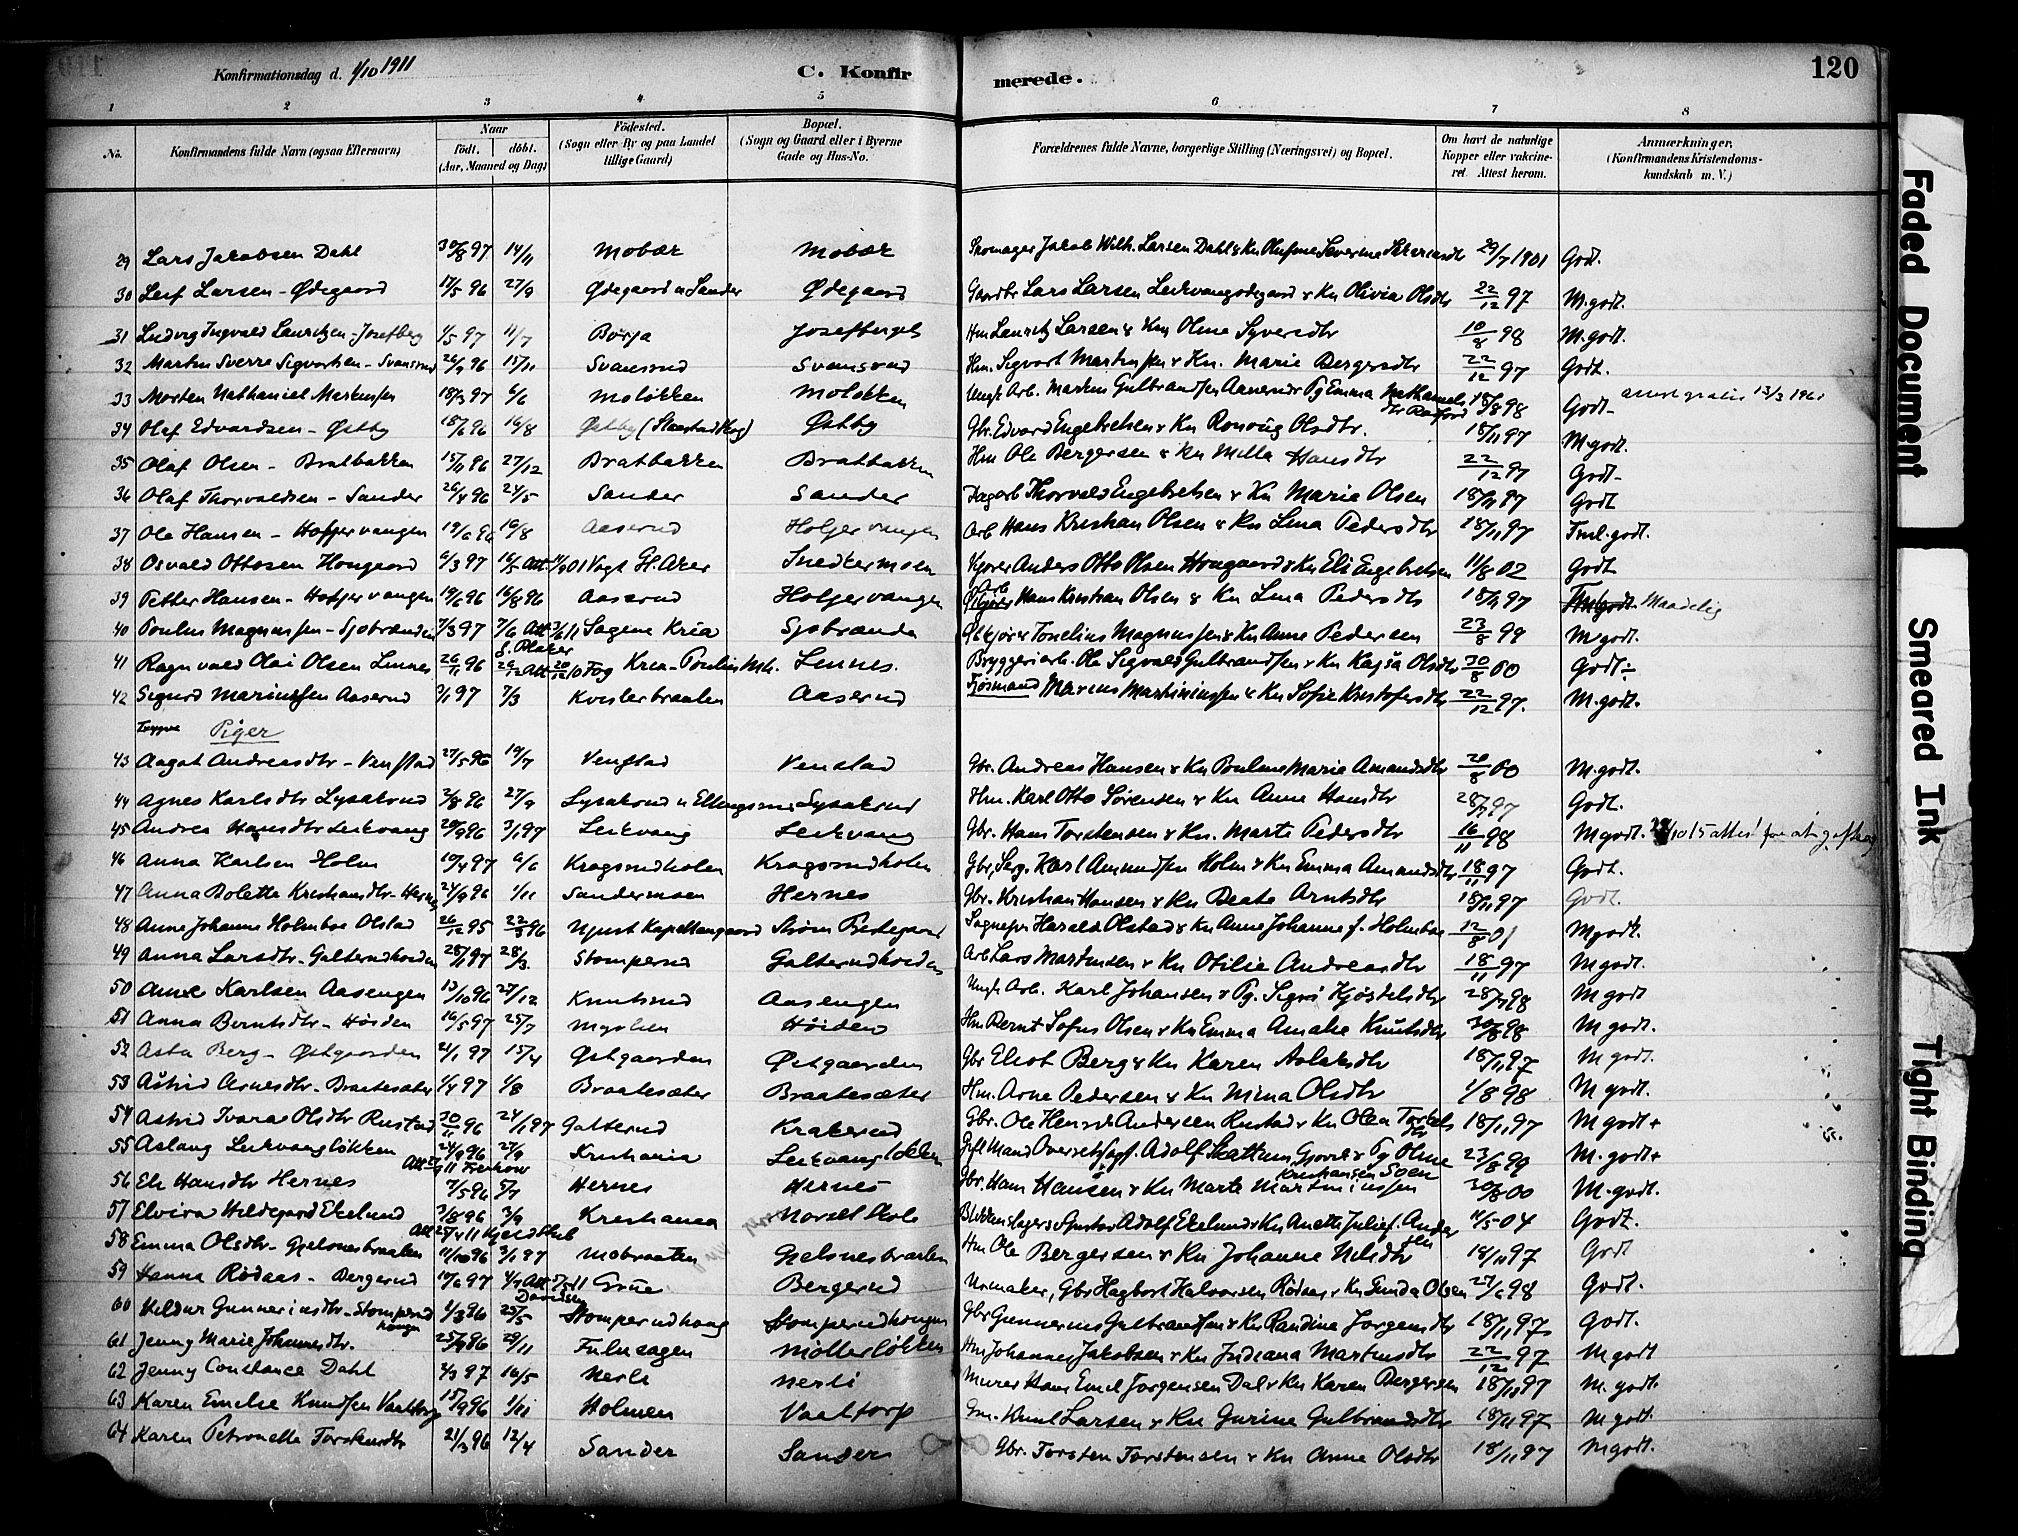 Konfirmationsdag d. 1/10 1911 C. Konfirmerede. 120
1 2 3 4 5 6 7 8
No. Konfirmandens fulde Navn (ogsaa Efternavn) Naar Födt. döbt. (Aar, Maaned og Dag) Födested. (Sogn eller By og paa Landet tillige Gaard) Bopæl. (Sogn og Gaard eller i Byerne Gade og Hus-No. Forældrenes fulde Navne, borgerlige Stilling (Næringsvei) og Bopæl. Om havt de naturlige Kopper eller vakcineret. Attest herom. Anmærkninger. (Konfirmandens Kristendomskundskab m. V.)
29 Lars Jakobsen Dahl 30/8 97 14/11 Mobær Mobær Skomager Jakob Wilh. Larsen Dahl & Kn Severine 29/7 1901 Godt.
30 Leif Larsen - Ødegaard 17/5 96 27/9 Ødegaard u Sander Ødegaard Gaardbr Lars Larsen & Kn Olivia Olsdtr 22/12 97 M.godt.
31 Ludvig Ingvald Lauritzen - Josefberg 1/5 97 11/7 Børja Josefberget Hm Lauritz Larsen & Kn Oline Syversdtr 10/8 98 M.godt.
32 Martin Sverre Sigvartsen - Svensrud 26/9 96 15/11 Svensrud Svensrud Hm. Sigvart Martinsen & Kn. Marie Bergersdtr 22/12 97 Godt.
33 Morten Nathaniel Markussen 18/3 97 6/6 Moløkken Moløkken Ungk Arb. Markus Gulbrandsen Aaserud & Pg Emma Nathanielsdtr 18/8 98 Godt- 13/3 1961
34 Olaf Edvardsen - Østby 18/6 96 16/8 Østby Østby Gbr. Edvard Engebretsen & Kn Ronoug Olsdtr. 18/11 97 M.godt.
35 Olaf Olsen - Bratbakken 15/11 96 27/12 Bratbakken Bratbakken Hm Ole Bergersen & Kn Milla Hansdtr 22/12 97 Godt-
36 Olaf Thorvaldsen - Sander 26/4 96 24/5 Sander Sander Dagarb Thorvald Engebretsen & Kn Marie Olsen 18/11 97 Godt
37 Ole Hansen - Holjervangen 19/6 96 16/8 Aaserud Holjervangen Arb Hans Kristian Olsen & Kn Lina Pedersdtr 18/11 97 Tml.godt.
38 Osvald Ottosen Hougaard 6/3 97 16/5 Att 11/9 01 Vogt Gl. Aker Snekkermoen Kjører Anders Otto Olsen Hougaard & Kn Eli Engebretsen 11/8 02 Godt
39 Petter Hansen - Holjervangen 19/6 96 16/8 96 Aaserud Holjervangen Arb Hans Kristian Olsen & Kn Lina Pedersdtr 18/11 97 Tml.godt. Maadelig
40 Paulus Magnussen - Sjøbrænden 7/3 97 7/6 Att 3/6 11 Sagene Kria Sjøbrænda Ølkjører Tonelius Magnussen & Kn Anne Pedersen 23/8 99 M.godt.
41 Ragnvald Olai Olsen Linnes 26/11 96 26/12 Att 20/12 10 Kria - Paulus Mh. Linnes. Bryggeriarb. Ole Sigvald Gulbrandsen & Kn Kajsa Olsdtr 30/8 00 Godt÷
42 Sigurd Mariussen Aaserud 3/1 97 7/3 Kvislerbraaten Aaserud Fjøsmand Marius Martiniussen & Kn Sofie Kristofersdtr 22/12 97. M.godt.
Piger
43 Aagot Andreasdtr - Venstad 27/5 96 19/7 Venstad Venstad Gbr. Andreas Hansen & Kn Pauline Marie Amundsdtr 20/8 00 M.godt.
44 Agnes Karlsdtr Lysakrud 3/8 96 27/9 Lysakrud Lysakrud Hm. Karl Otto Sørensen & Kn Anne Hansdtr 28/11 97 Godt.
45 Andrea Hansdtr Leikvang 20/9 96 3/1 97 Leikvang Leikvang Gbr. Hans Torstensen & Kn. Marte Pedersdtr 16/11 98 M.godt.
46 Anna Karlsen Holen 19/4 97 6/6 Kragsrudholen Kragsrudholen Gbr, Sag. Karl Amundsen Holen & Kn Emma Amundsdtr 18/11 97 Godt.
47 Anna Bolette Kristiansdtr - Hernes 24/9 96 1/11 Sandermoen Hernes Gbr. Kristian Hansen & Kn Beate Arntsdtr 18/11 97 Godt.
48 Anne Johanne Holmboe Olstad 26/12 95 22/3 96 Kapellangaard Strøm Prestegaard Sognepr Harald Olstad & Kn Anne Johanne f. Holmboe 12/8 01 M.godt.
49 Anna Larsdtr - Galterudhoiden 28/1 97 28/3 Stomperud Galterudhoiden Arb Lars Martinsen & Kn Otilie Andreasdtr 18/11 97 M.godt.
50 Anne Karlsen Aasengen 13/10 96 27/12 Knutsrud Aasengen Ungk Arb. Karl Johansen & Pg. Sigrid Kjøstelsdtr 28/7 98 M godt
51 Anna Berntsdtr - Høiden 16/5 97 25/7 Myrlien Høiden Hm Bernt Sofus Olsen & Kn Emma Amalie Knutsdtr 30/8 98 M godt.
52 Asta Berg - Østgaarden 21/1 97 15/4 Østgaarden Østgaarden Gbr Eliot Berg & Kn Karen Aslaksdtr 18/11 97 M godt.
53 Åstrid Arnesdtr - Braatesæter 1/4 97 1/8 Braatesæter Braatesæter Hm. Arne Pedersen & Kn Mina Olsdtr 1/8 98 M godt.
54 Astrid Ivara Olsdtr Rustad 30/11 96 24/1 97 Galterud Krakerud Gbr. Ole Henrik Andersen Rustad & Kn Olea Torkelsdtr 18/11 97 M godt+
55 Aslaug Leikvangløkken 24/9 96 27/9 Kristiania Leikvangløkken Gift Mand Adolf Skattum Gjøvik & Pg Oline Kristiansen Soen 23/8 99 M.godt+
56 Eli Hansdtr Hernes 7/5 96 5/7 Hernes Hernes Gbr. Hans Hansen & Kn Marte Martiniussen 30/8 00 M.godt.
57 Elvira Hildegard Ekelund 3/8 96 3/9 Kristiania Norsti Skole Blikkenslager Gustav Adolf Ekelund & Kn Anette Julie f. Andersen 11/5 04 Godt.
58 Emma Olsdtr - Gjelsnesbraaten 11/10 96 3/1 97 Mobraaten Gjelsnesbraaten Hm Ole Bergersen & Kn Johanne Nilsdtr 18/11 97 Godt
59 Hanna Rødaas - Bergerud 19/6 97 4/7 Grue Bergerud Urmaker, Gbr Hagbart Halvorsen Rødaas & Kn Gunda Olsen 27/6 98 Godt.
60 Hildur Gunneriusdtr - Stomperudhaugen 1/3 96 25/5 Stomperudhaug Stomperudhaugen Gbr Gunnerius Gulbrandsen & Kn Randina Jørgensdtr 18/11 97 Godt.
61 Jenny Marie Johannesdtr. 25/9 96 29/11 Fulusagen Møllerløkken Hm Johannes Jakobsen & Kn Indiana Martinsdtr 22/12 97 M godt
62 Jenny Constance Dahl 2/3 97 16/5 Nerli Nerli Murer Hans Emil Jørgensen Dal & Kn Karen Bergersen 18/11 97 M. godt.
63 Karen Emelie Knudsen Vaaltorp 15/9 96 1/11 Holmen Vaaltorp Gm. Knut Larsen & Kn Gurine Gulbrandsdtr 18/11 97 M godt.
64 Karen Petronelle Torstensdtr 21/3 96 12/4 Sander Sander Gbr. Torsten Torstensen & Kn Anne Olsdtr 18/11 97 M godt.
Faded Document
Smeared Ink
Tight Binding